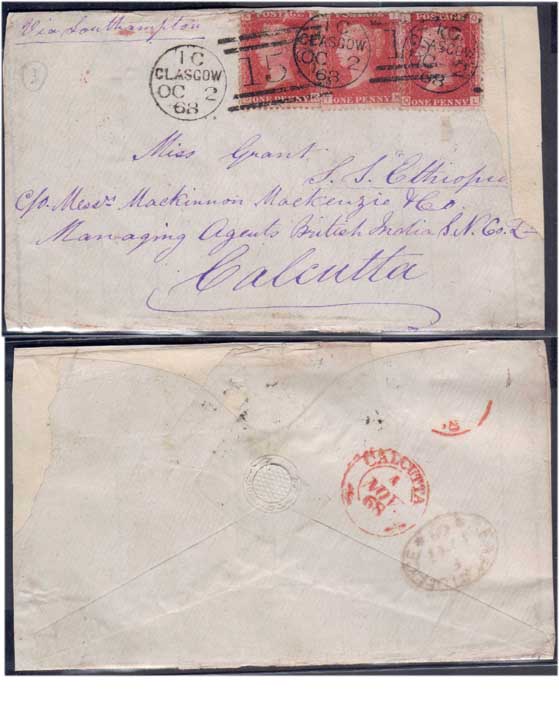 Via Southampton
3
1C
GLASGOW
OC 2
68
15
1C
GLASGOW
OC 2
68
GLASGOW
OC 2
68
POSTAGE
POSTAGE
POSTAGE
ONE PENNY
ONE PENNY
ONE PENNY
Miss Grant
S.S. "Ethiopia
C/o. Messrs Mackinnon Mackenzie & Co.
Managing Agents British India S.N. Co. L
Calcutta
CALCUTTA
4
NOV
68